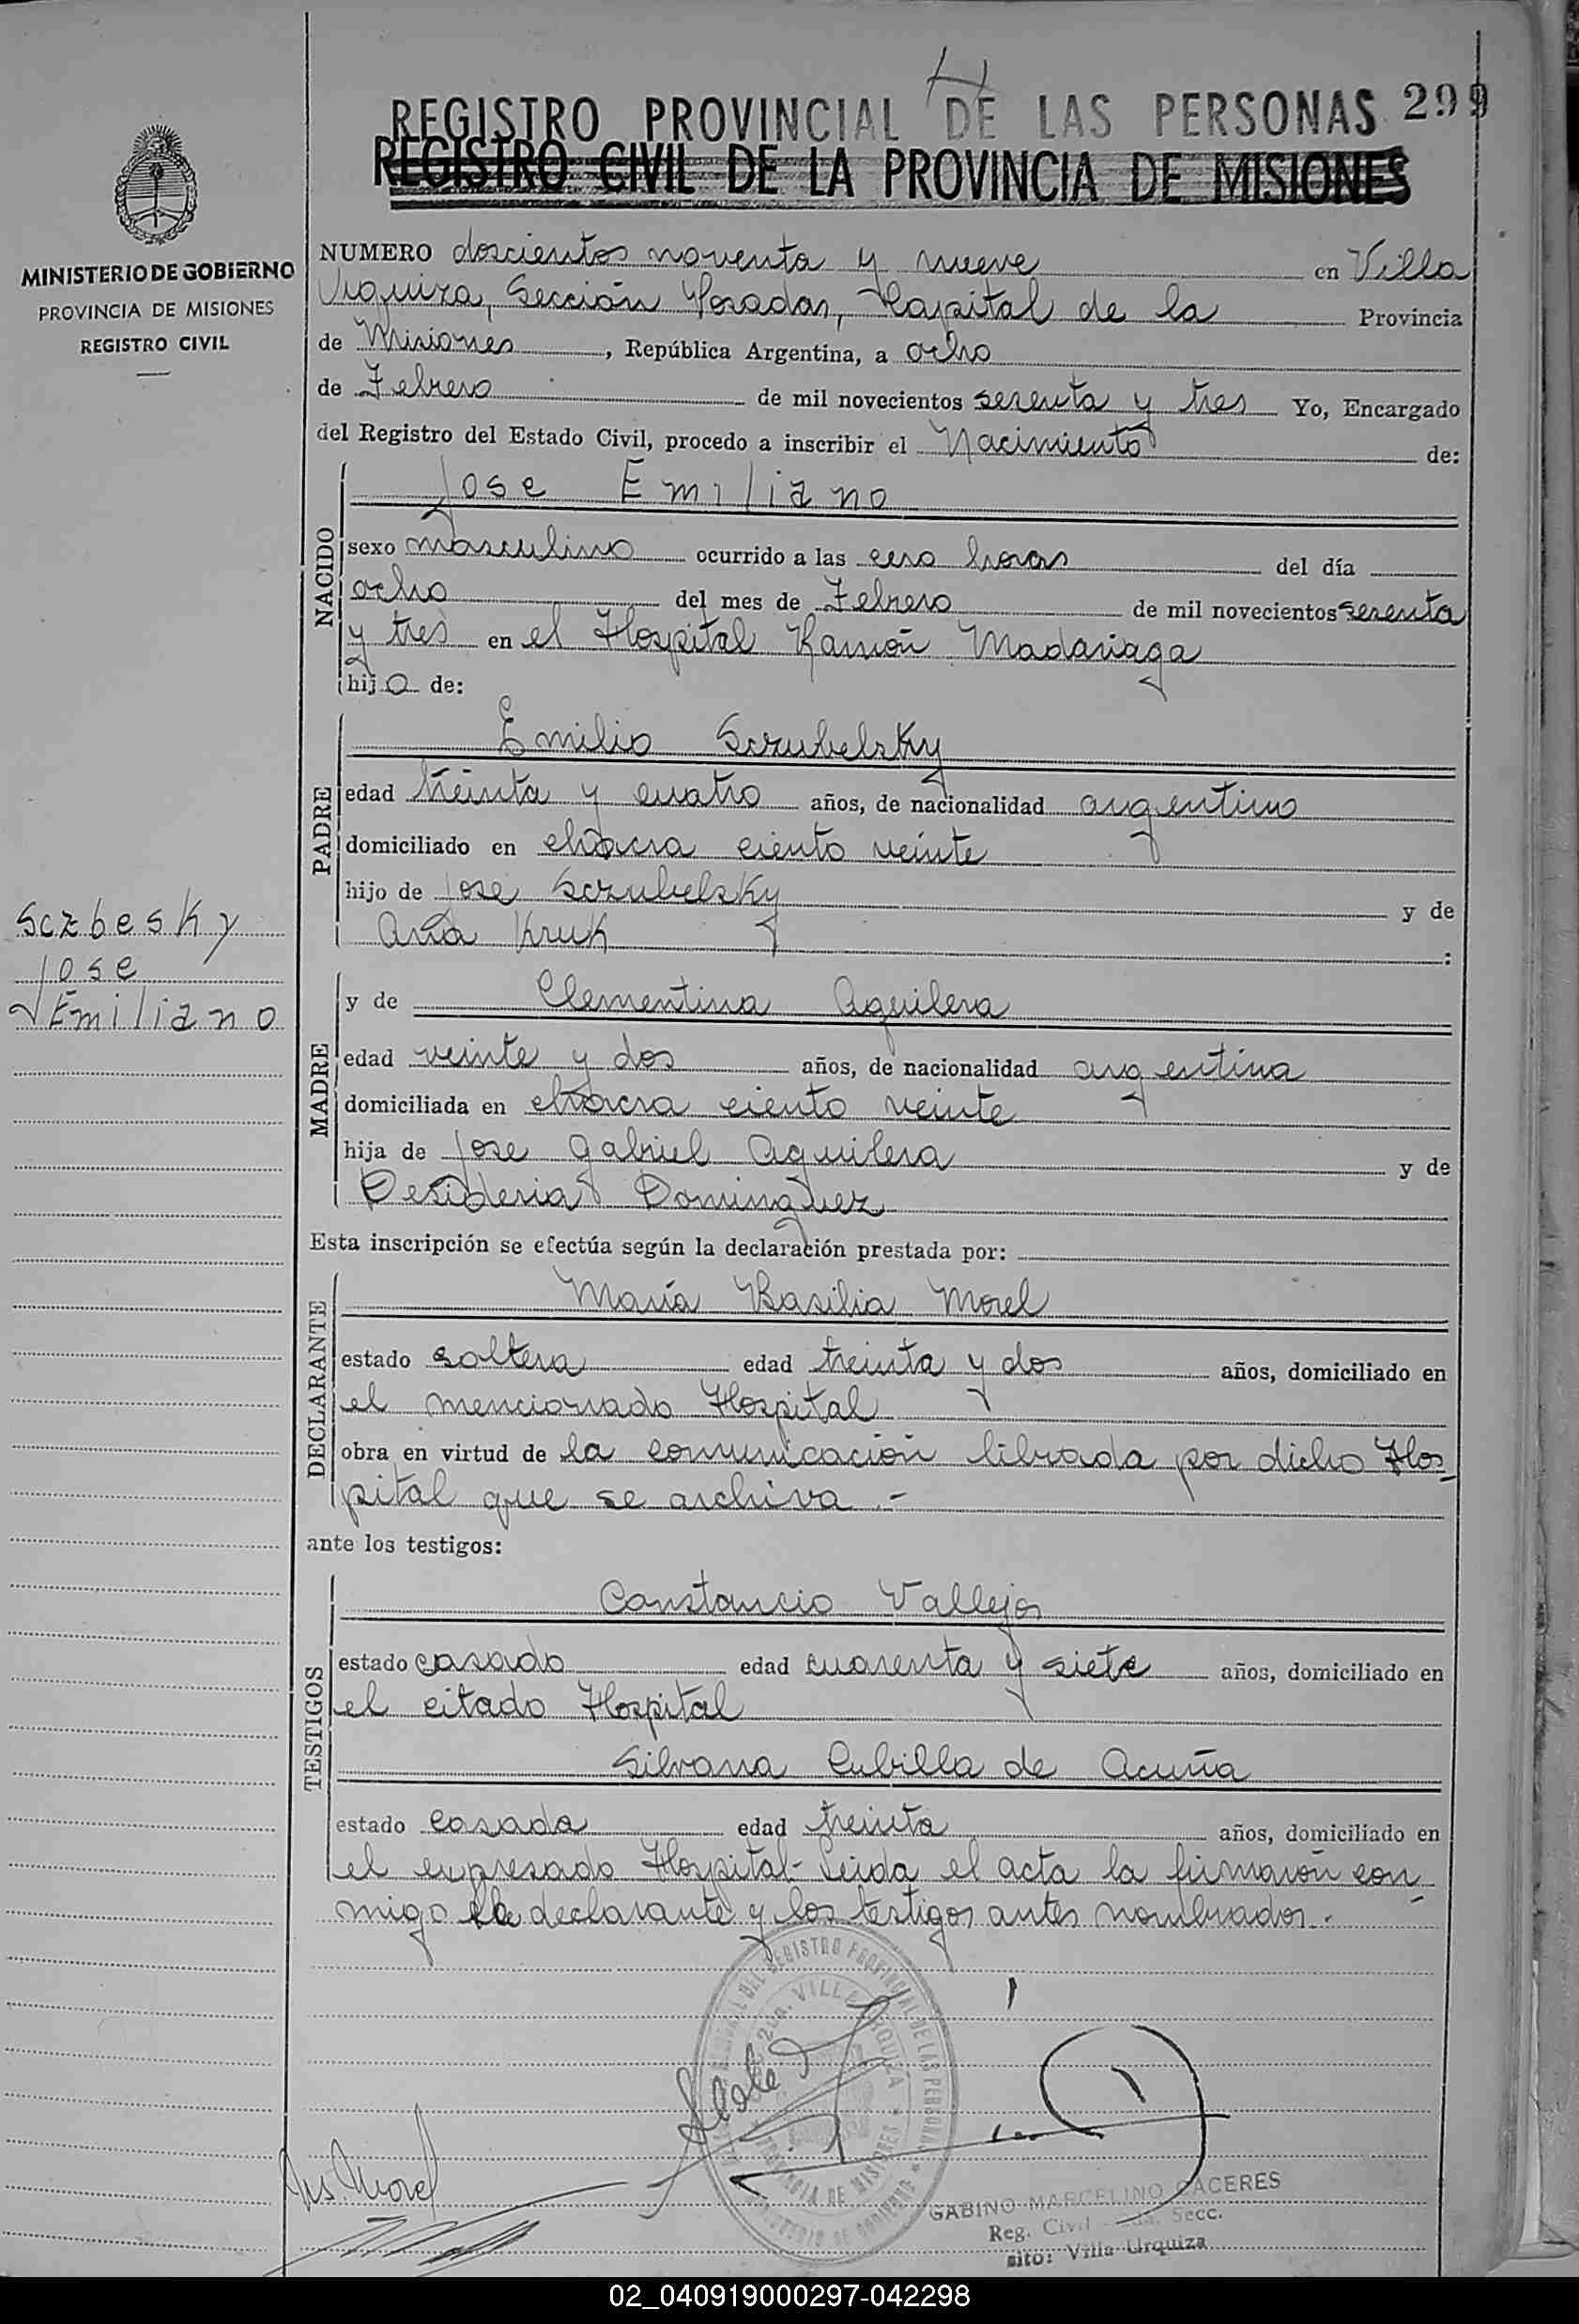 REGISTRO PROVINCIAL DE LAS PERSONAS 299
REGISTRO CIVIL DE LA PROVINCIA DE MISIONES
MINISTERIO DE GOBIERNO
PROVINCIA DE MISIONES
REGISTRO CIVIL
NUMERO doscientos noventa y nueve en Villa
Urquiza, Sección Posadas, Capital de la Provincia
de Misiones, República Argentina, a ocho
de Febrero de mil novecientos setenta y tres Yo, Encargado
del Registro del Estado Civil, procedo a inscribir el Nacimiento de:
NACIDO
Jose Emiliano
sexo masculino ocurrido a las cero horas del día
ocho del mes de Febrero de mil novecientos setenta
y tres en el Hospital Ramón Madariaga
hijo de:
PADRE
Emilio Sczubelsky
edad treinta y cuatro años, de nacionalidad argentino
domiciliado en chacra ciento veinte
hijo de Jose Sczubelsky y de
Ana Kruk :
Sczbesky
Jose
Emiliano
MADRE
y de Clementina Aguilera
edad veinte y dos años, de nacionalidad argentina
domiciliada en chacra ciento veinte
hija de Jose Gabriel Aguilera y de
Desideria Dominguez
Esta inscripción se efectúa según la declaración prestada por:
DECLARANTE
María Basilia Morel
estado soltera edad treinta y dos años, domiciliado en
el mencionado Hospital
obra en virtud de la comunicación librada por dicho Hos-
pital que se archiva.-
ante los testigos:
TESTIGOS
Constancio Vallejos
estado casado edad cuarenta y siete años, domiciliado en
el citado Hospital
Silvana Cubilla de Acuña
estado casada edad treinta años, domiciliado en
el expresado Hospital- Leida el acta la firmaron con-
migo la declarante y los testigos antes nombrados.-
Ms. Morel
GABINO MARCELINO CACERES
Reg. Civil Secc.
sito: Villa Urquiza
02_040919000297-042298